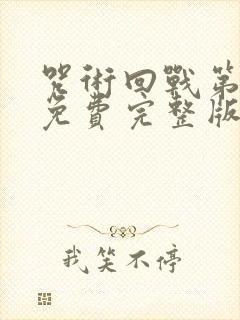 咒術回戰第
免費完整版
我笑不停